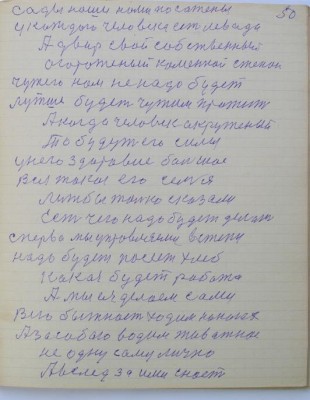 50
сады наши новы посатены
у каждого человека ест левада
А двыр свой собственный
огороженый каменой стеною
чужего ном не надо будет
лутше будет чужим прожит
А когда человек окруженый
То будут его силы
у него здоровие болшое
Вся такая его семя
лижбы толко сказали
Ест чего надо будет делат
сперва мы управляеми встени
надо будет посеет хлеб
Какая будет работа
А мы ея делаем сами
В его быт ходим на
А за собою водим животное
не одну саму лично
А вслед за ими